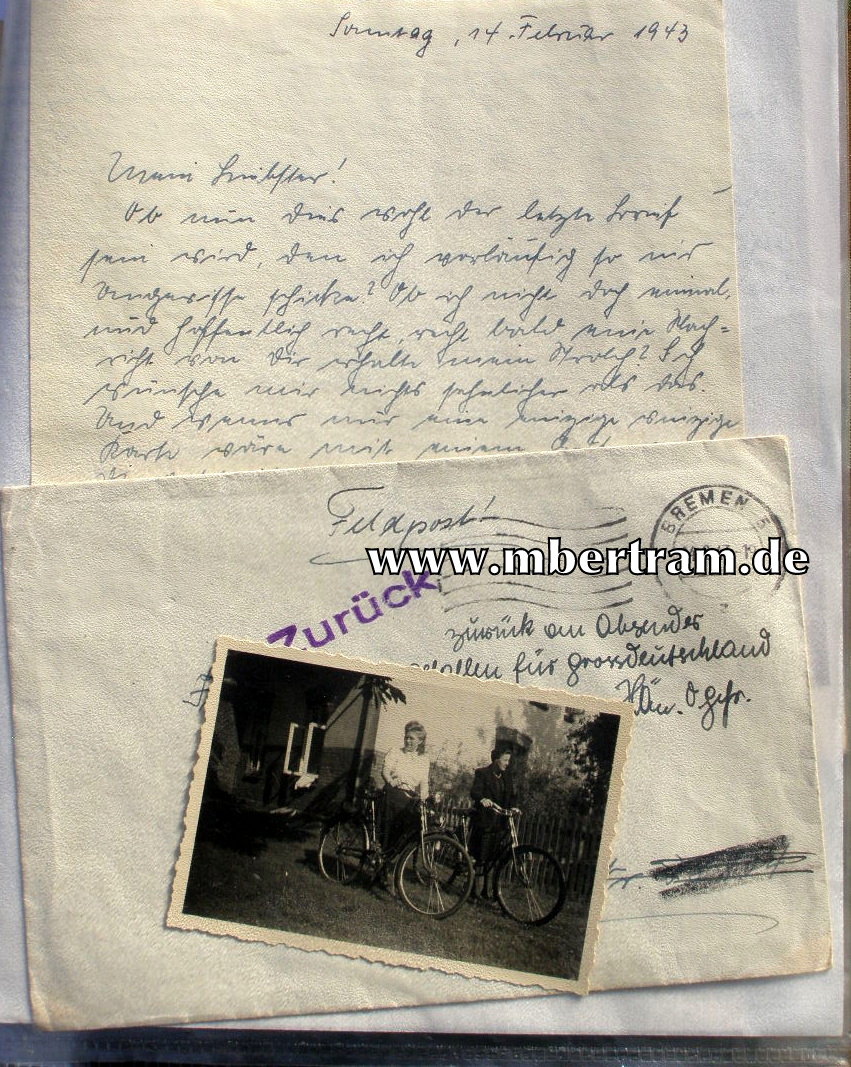 Sonntag, 14. Februar 1943
Mein Liebster!
Ob nun dies wohl der letzte Brief
sein wird, den ich vorläufig so ins
Ungewisse schicke? Ob ich nicht doch einmal,
und hoffentlich recht, recht bald eine Nach=
richt von Dir erhalte mein Strolch? Ich
wünsche mir nichts sehnlicher als das.
Und wenns nur eine einzige winzige
Karte wäre mit einem
Feldpost!
BREMEN 5
www.mbertram.de
Zurück
zurück an Absender
gefallen für Grossdeutschland
Ogfr.